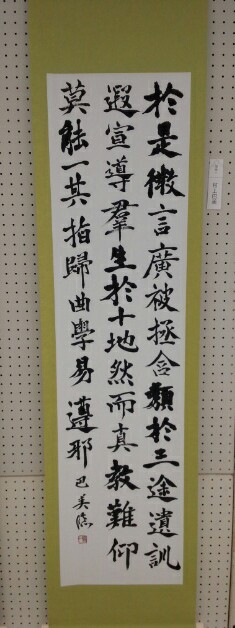 於是微言廣被拯含類於三途遺訓
遐宣導羣生於十地然而真教難仰
莫能一其指歸曲學易遵邪 巴美臨